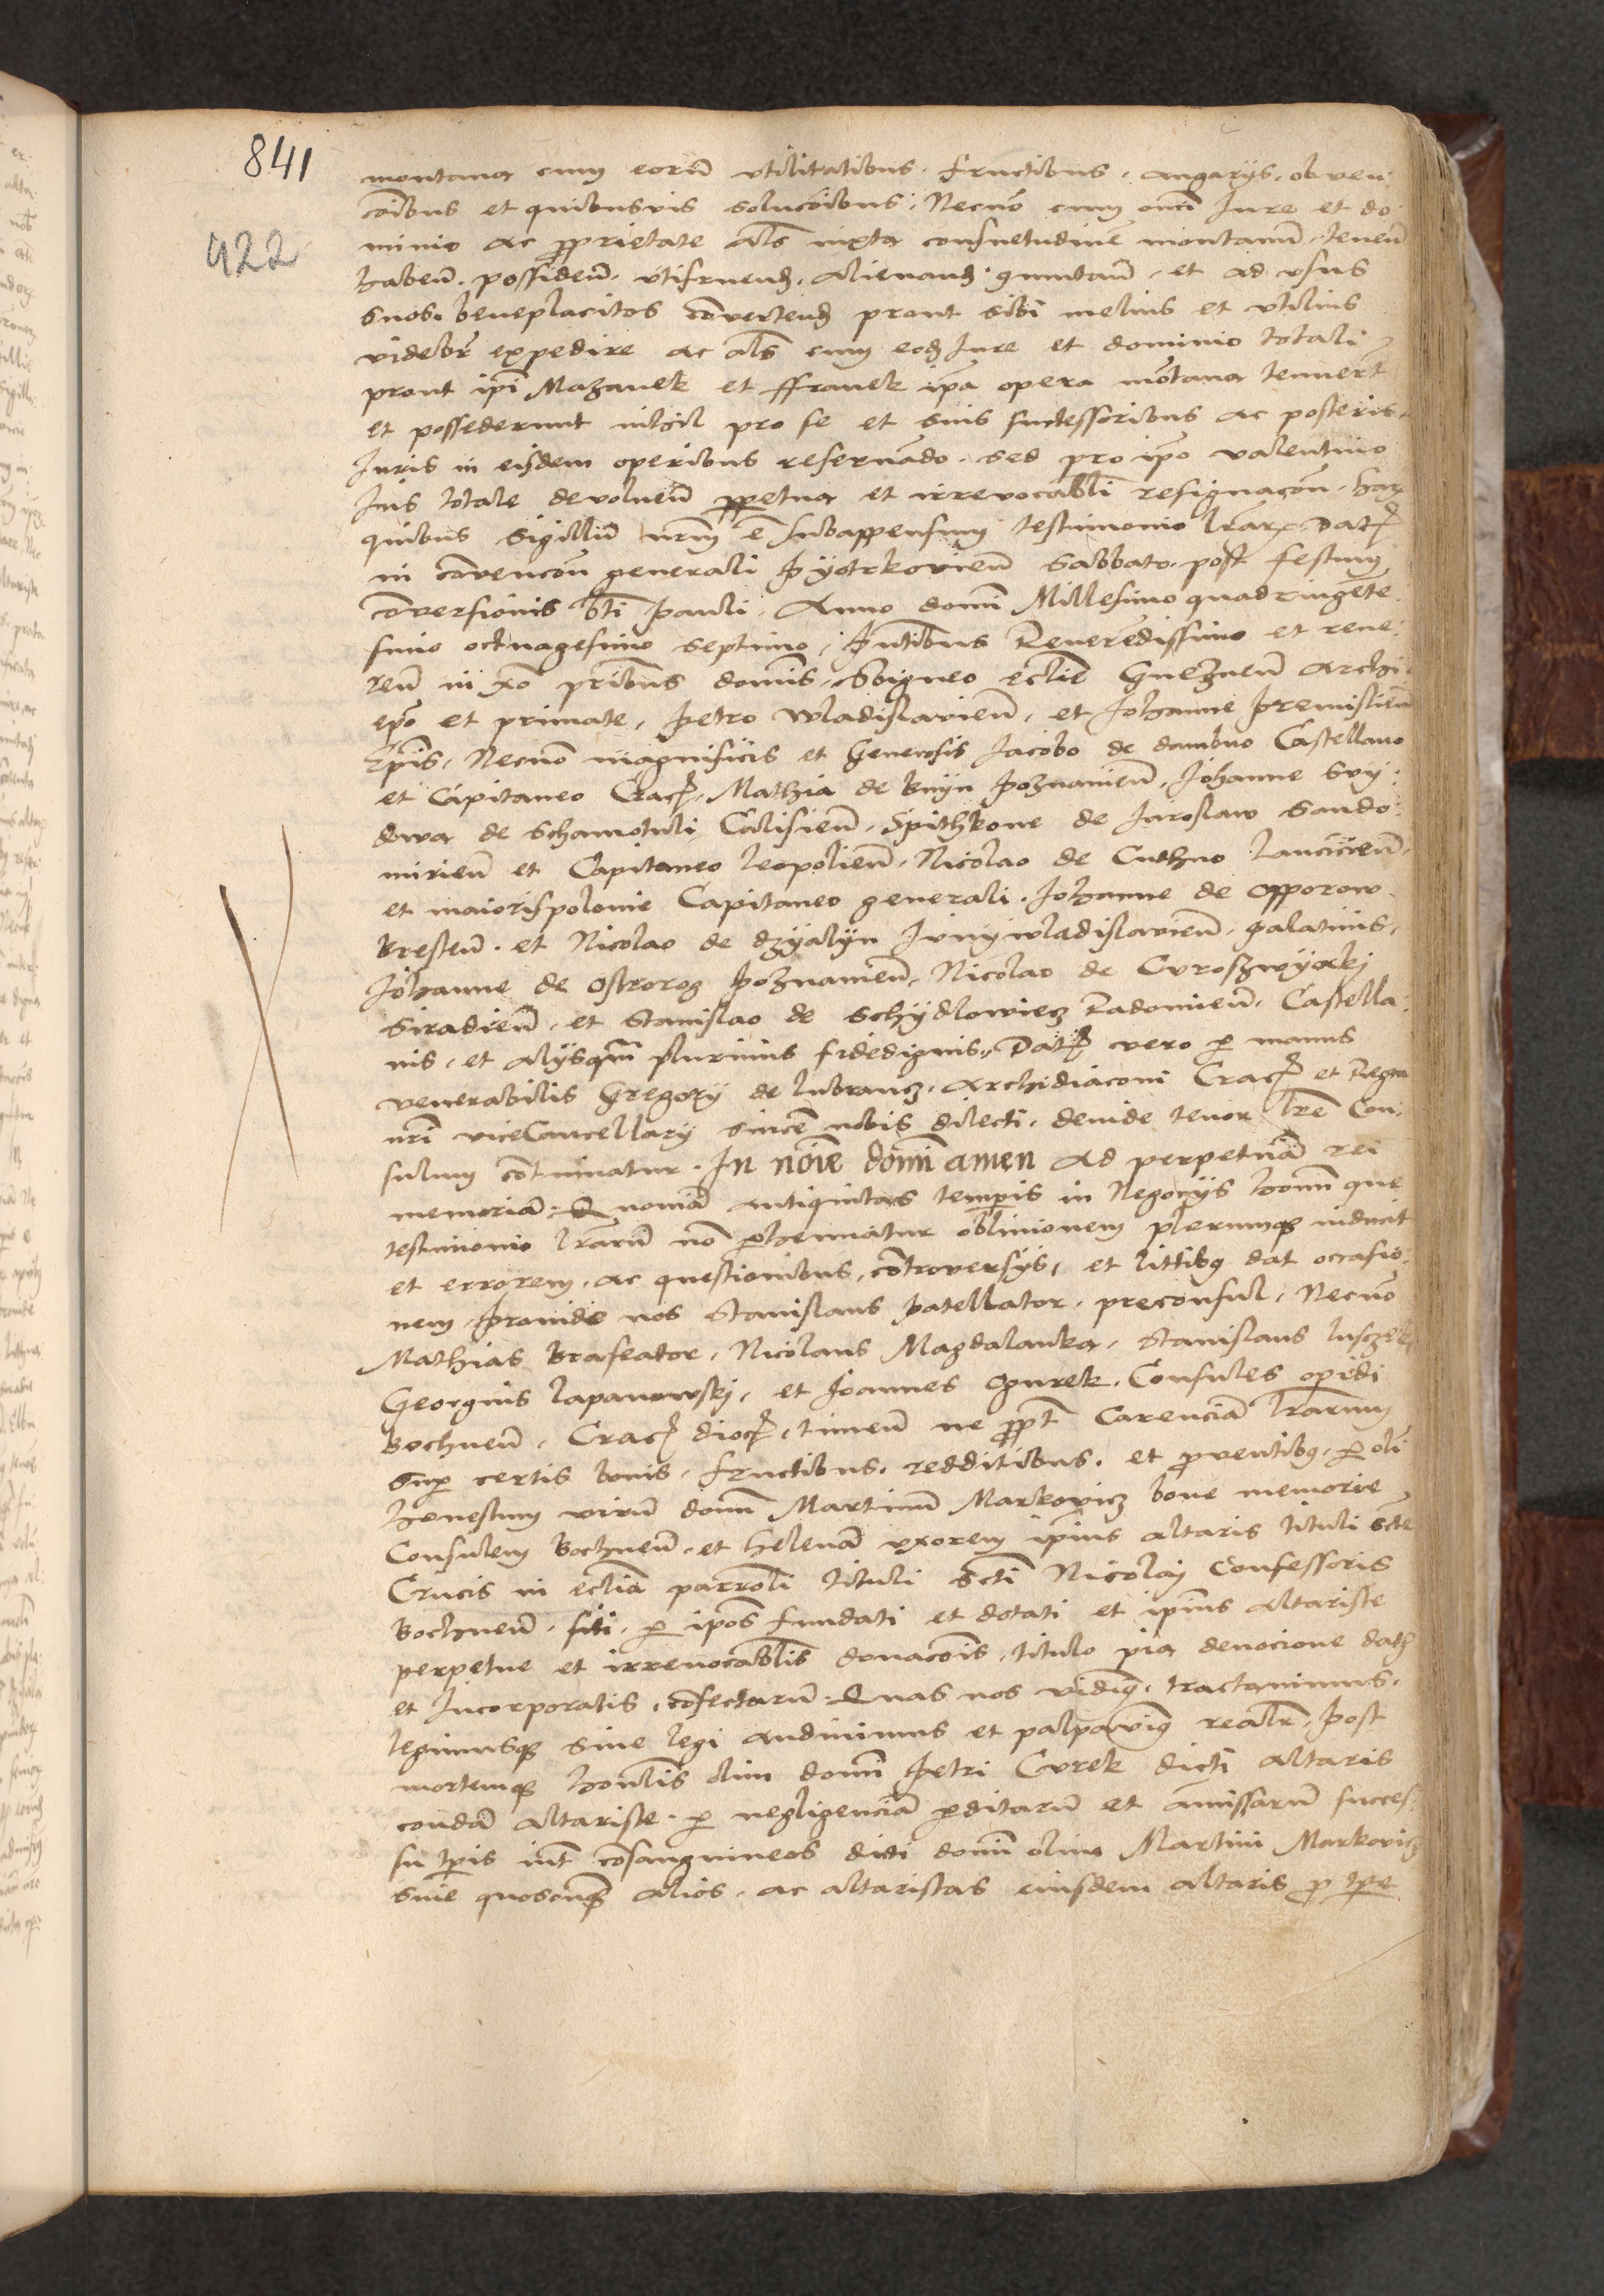 841
422
montana cum eorū vtilitatibus. fructibus. angarijs. obven:
cōibus et quibusvis solucōibus: Necnō cum omī Jure et do
minio ac ꝓprietate als̄ iuxta consuetudinē montanū. teneñ
habeñ. possideñ. vtifruend. alienand. ꝯmutañ. et ad vsus
suos. beneplacitos cōvertend prout sibi melius et vtilius
videbr̄ expedire ac als̄ cum eod Jure et dominio totali
prout ipī Mazanek et ffranek ipā opera mōtana tenuert̄
et possederunt nihil pro se et suis successoribus ac posteris.
Juris in eisdem operibus reservādo. sed pro ipō valentino
Jus totale devolueñ ꝑpetua et irrevocabl̄i resignacōn. har
quibus sigillū nr̄m ē subappensum testimonio lr̄ar. Dat
in cōvencōn generali Pyotrkovieñ sabbato. post festum
cōversionis bt̄i Pauli. Anno domī Millesimo quadringēte
simo octuagesimo septimo. Pn̄tibus Reverēdissimo et reve:
reñ in xō prībus domīs. Sbigneo ecclīe Gnezneñ archi
epō et primate. Petro wladislavieñ. et Johanne Premislieñ
Epīs. Necnō magnificis et Generosis Jacobo de dambno Castellano
et Capitaneo Crac. Mathia de bnyn Poznanieñ. Johanne svy:
dwa de schamotuli Calisieñ. Spithkone de Jaroslaw Sando:
mirieñ et Capitaneo leopolieñ. Nicolao de Cuthno lancicieñ.
et maiorispolonie Capitaneo generali. Johanne de opporow
bresteñ. et Nicolao de dzyalyn Junywladislavieñ. palatinis.
Johanne de ostrorog Poznanieñ. Nicolao de Curoszwyaki
Siradieñ. et Stanislao de Schydlowiecz Radomieñ. Castella:
nis. et alijsqm̄ plurimis fidedignis. Dat vero ꝑ manus
venerabilis Gregorij de lubrancz. archidiaconi Crac et Regni
nr̄i viceCancellarij sincē nobis dilecti. deinde tenor lr̄e Con:
sulum cōtinuatur. In nōie domī amen ad perpetuā rei
memoriā. Quoniā antiquitas temp̄is in Negocijs homī que
testimonio lr̄arū nō ꝑhennatur oblivionem plerumqꝫ inducit
et errorem. ac questionibus. cōtroversijs. et littibꝰ dat occasio:
nem. Proinde nos Stanislaus Patellator. preconsul. Necnō
Mathias braseator. Nicolaus Magdalanka. Stanislaus lusczek
Georgius lapanowski. et Joannes ogurek. Consules opidi
bochneñ. Crac dioc. timeñ ne ꝓpt̄ Carenciā lr̄arum
Suꝑ certis bonis. fructibus. redditibus. et ꝓventibꝰ. ꝑ olī
honestum virū domī Martinū Markovicz bone memorie
Consulem bochneñ. et helenā vxorem ipīus altaris tituli Scte
Crucis in ecclīa parroli tituli Scti Nicolai Confessoris
bochneñ. siti. ꝑ ipōs fundati et dotati et ipīus altariste
perpetue et irrevocabl̄is donacōis. titulo pia devocione dat
et Incorporatis. cōfectarū. Quas nos vidimꝰ. tractavimus.
legimusqꝫ sive legi audivimus et palpavimꝰ realr̄. Post
mortemqꝫ hon̄lis olim domī Petri Curek dicti altaris
condā altariste. ꝑ negligenciā ꝑditarū et amissarū succes:
su tp̄is int̄ cōsanguineos dicti domī olim Martini Markovicz
sive quoscunqꝫ alios. ac altaristas eiusdem altaris ꝓ tp̄e